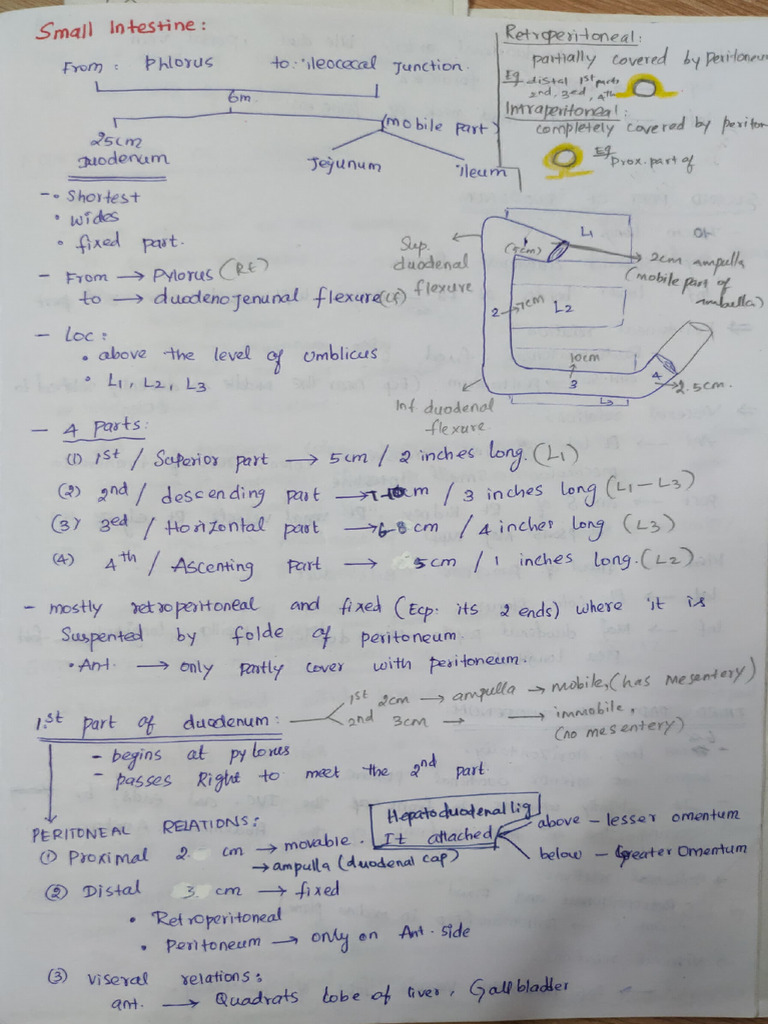 Small Intestine:
From: Phlorus to: ileocecal junction.
6m
25cm
Duodenum
(mobile part)
Jejunum
ileum
Retroperitoneal:
partially covered by peritoneum
Eg distal 1st part,
2nd, 3ed, 4th
Intraperitoneal:
completely covered by periton
Eg Prox. part of
- • Shortest
• wides
• fixed part.
- From → Pylorus (RE)
to → duodenojenunal flexure
- Loc:
• above the level of umblicus
• L1, L2, L3
Sup.
duodenal
flexure
L1
(5cm)
2cm ampulla
(mobile part of
2 → 7cm
L2
10cm
3
4
2.5cm.
L3
Inf duodenal
flexure
- 4 parts:
(1) 1st / Superior part → 5cm / 2 inches long. (L1)
(2) 2nd / descending part → cm / 3 inches long (L1-L3)
(3) 3ed / Horizontal part → 6-8cm / 4 inches long (L3)
(4) 4th / Ascenting part → 5cm / 1 inches long. (L2)
- mostly retroperitoneal and fixed (Ecp. its 2 ends) where it is
Suspented by folde of peritoneum.
• Ant. → only partly cover with peritoneum.
1.st part of duodenum:
1st 2cm → ampulla → mobile, (has mesentery)
2nd 3cm → → immobile,
(no mesentery)
- begins at pylorus
- passes Right to meet the 2nd part.
PERITONEAL RELATIONS:
Hepatoduodenal lig
It attached
above - lesser omentum
below - Greater Omentum
① Proximal 2 cm → movable.
→ ampulla (duodenal cap)
② Distal 3 cm → fixed
• Retroperitoneal
• Peritoneum → only on Ant. side
③ viseral relations:
ant. → Quadrats lobe of liver, Gallbladder